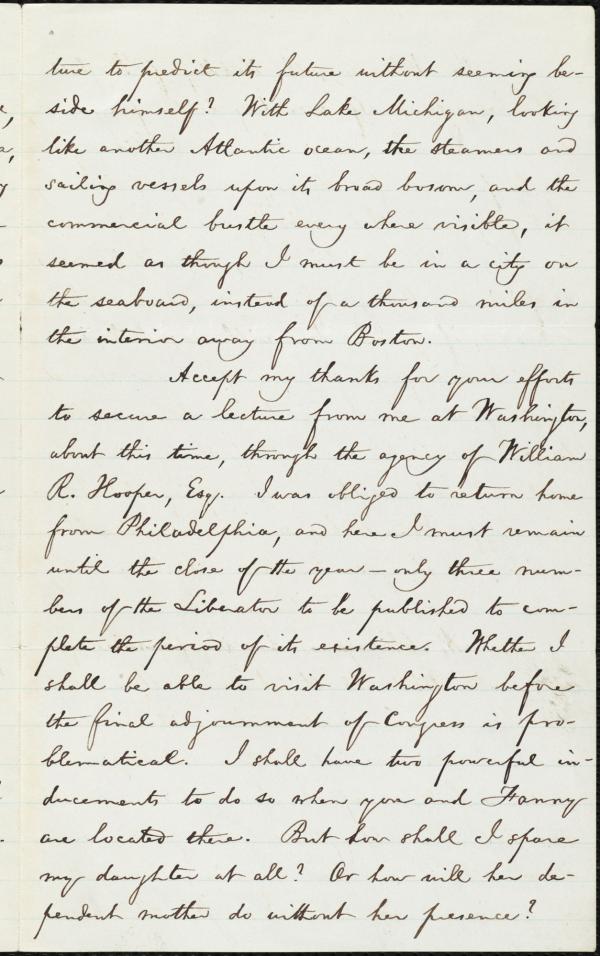 ture to predict its future without seeming be-
side himself? With Lake Michigan, looking
like another Atlantic ocean, the steamers and
sailing vessels upon its broad bosom, and the
commercial bustle every where visible, it
seemed as though I must be in a city on
the seaboard, instead of a thousand miles in
the interior away from Boston.
Accept my thanks for your efforts
to secure a lecture from me at Washington,
about this time, through the agency of William
R. Hooper, Esq. I was obliged to return home
from Philadelphia, and here I must remain
until the close of the year — only three num-
bers of the Liberator to be published to com-
plete the period of its existence. Whether I
shall be able to visit Washington before
the final adjournment of Congress is pro-
blematical. I shall have two powerful in-
ducements to do so when you and Fanny
are located there. But how shall I spare
my daughter at all? Or how will her de-
pendent mother do without her presence?